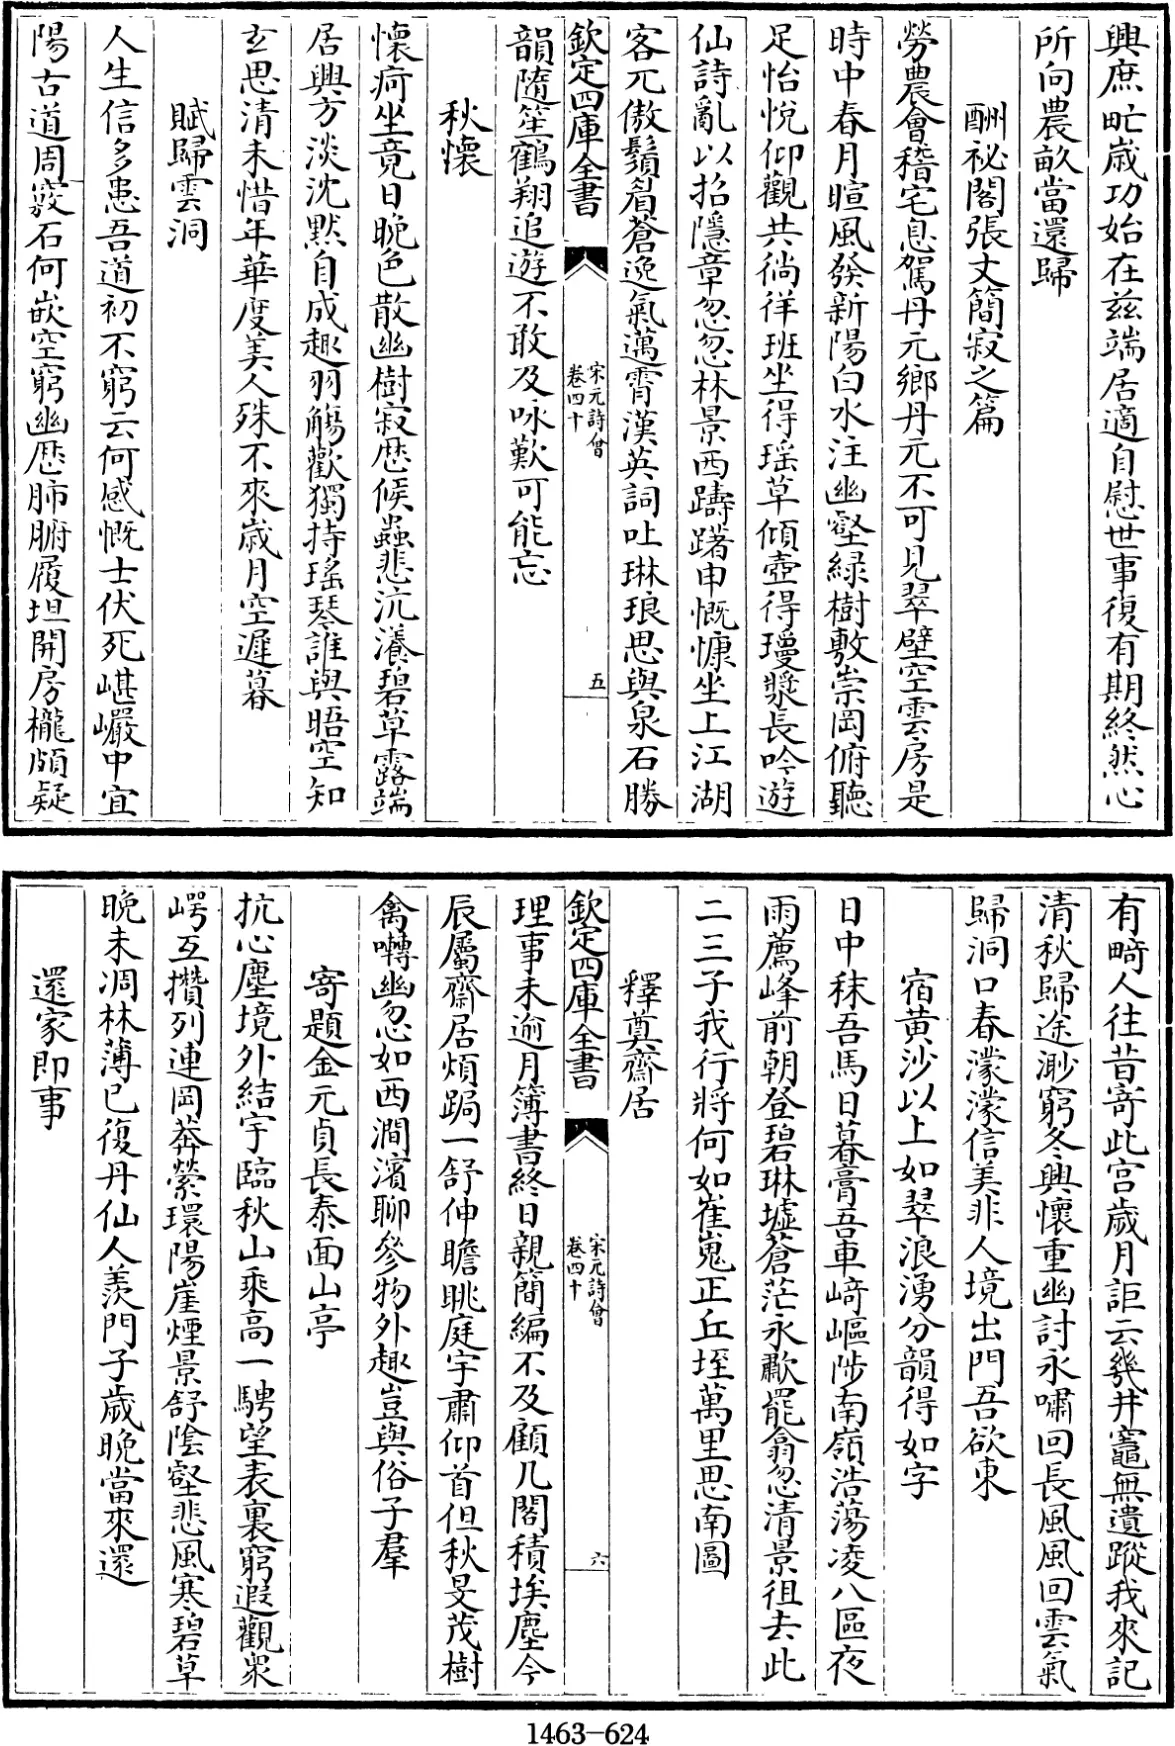 興庶𤰞歲功始在兹端居適自慰世事復有期終然心
所向農畝當還歸
酬祕閣張丈簡寂之篇
勞農會稽宅息駕丹元鄉丹元不可見翠壁空雲房是
時中春月暄風發新陽白水注幽壑緑樹敷崇岡俯聽
足怡悅仰觀共徜徉班坐得瑶草傾壺得瓊漿長吟遊
仙詩亂以招隱章忽忽林景西躊躇申慨慷坐上江湖
客兀傲鬚眉蒼逸氣邁霄漢英詞吐琳琅思與泉石勝
欽定四庫全書
宋元詩㑹
卷四十
五
韻隨笙鶴翔追遊不敢及咏歎可能忘
秋懷
懷痾坐竟日晚色散幽樹寂歴候蟲悲沆瀁碧草露端
居興方淡沈默自成趣羽觴歡獨持瑤琴誰與晤空知
玄思清未惜年華度美人殊不來歲月空遲暮
賦歸雲洞
人生信多患吾道初不窮云何感慨士伏死嵁巖中宜
陽古道周竅石何嵌空窮幽歴肺腑履坦開房櫳頗疑
有畸人往昔寄此宮歲月詎云幾井竈無遺蹤我來記
清秋歸途渺窮冬興懷重幽討永嘯回長風風回雲氣
歸洞口春濛濛信美非人境出門吾欲東
宿黄沙以上如翠浪湧分韻得如字
日中秣吾馬日暮膏吾車﨑嶇陟南嶺浩蕩凌八區夜
雨薦峰前朝登碧琳墟蒼茫永歎罷翕忽清景徂去此
二三子我行將何如崔嵬正丘垤萬里思南圖
釋奠齋居
欽定四庫全書
宋元詩㑹
卷四十
六
理事未逾月簿書終日親簡編不及顧几閣積埃塵今
辰屬齋居煩跼一舒伸瞻眺庭宇肅仰首但秋旻茂樹
禽囀幽忽如西澗濱聊參物外趣豈與俗子羣
寄題金元貞長泰面山亭
抗心塵境外結宇臨秋山乘高一騁望表裏窮遐觀衆
崿互攢列連岡莽縈環陽崖煙景舒陰壑悲風寒碧草
晚未凋林薄已復丹仙人羨門子歲晚當來還
還家即事
1463-624